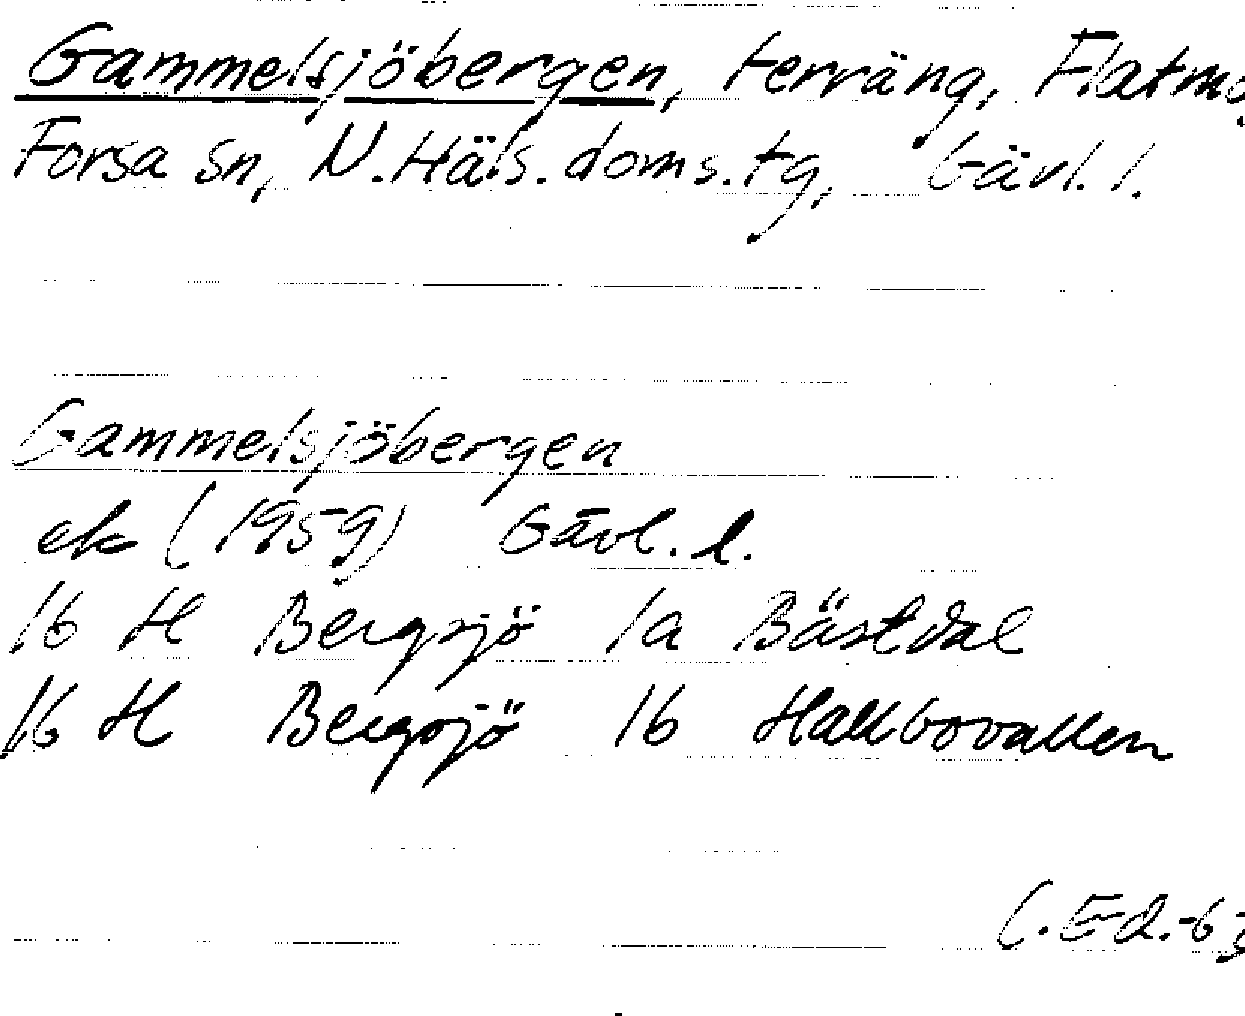 Gammelsjöbergen, terräng, Flatmo,
Forsa sn, N. Häls. doms.tg, Gävl. l.
Gammelsjöbergen
ek (1959) Gävl. l.
16 H Bergsjö 1a Bästdal
16 H Bergsjö 1b Hallbovallen
C. Ed.-63